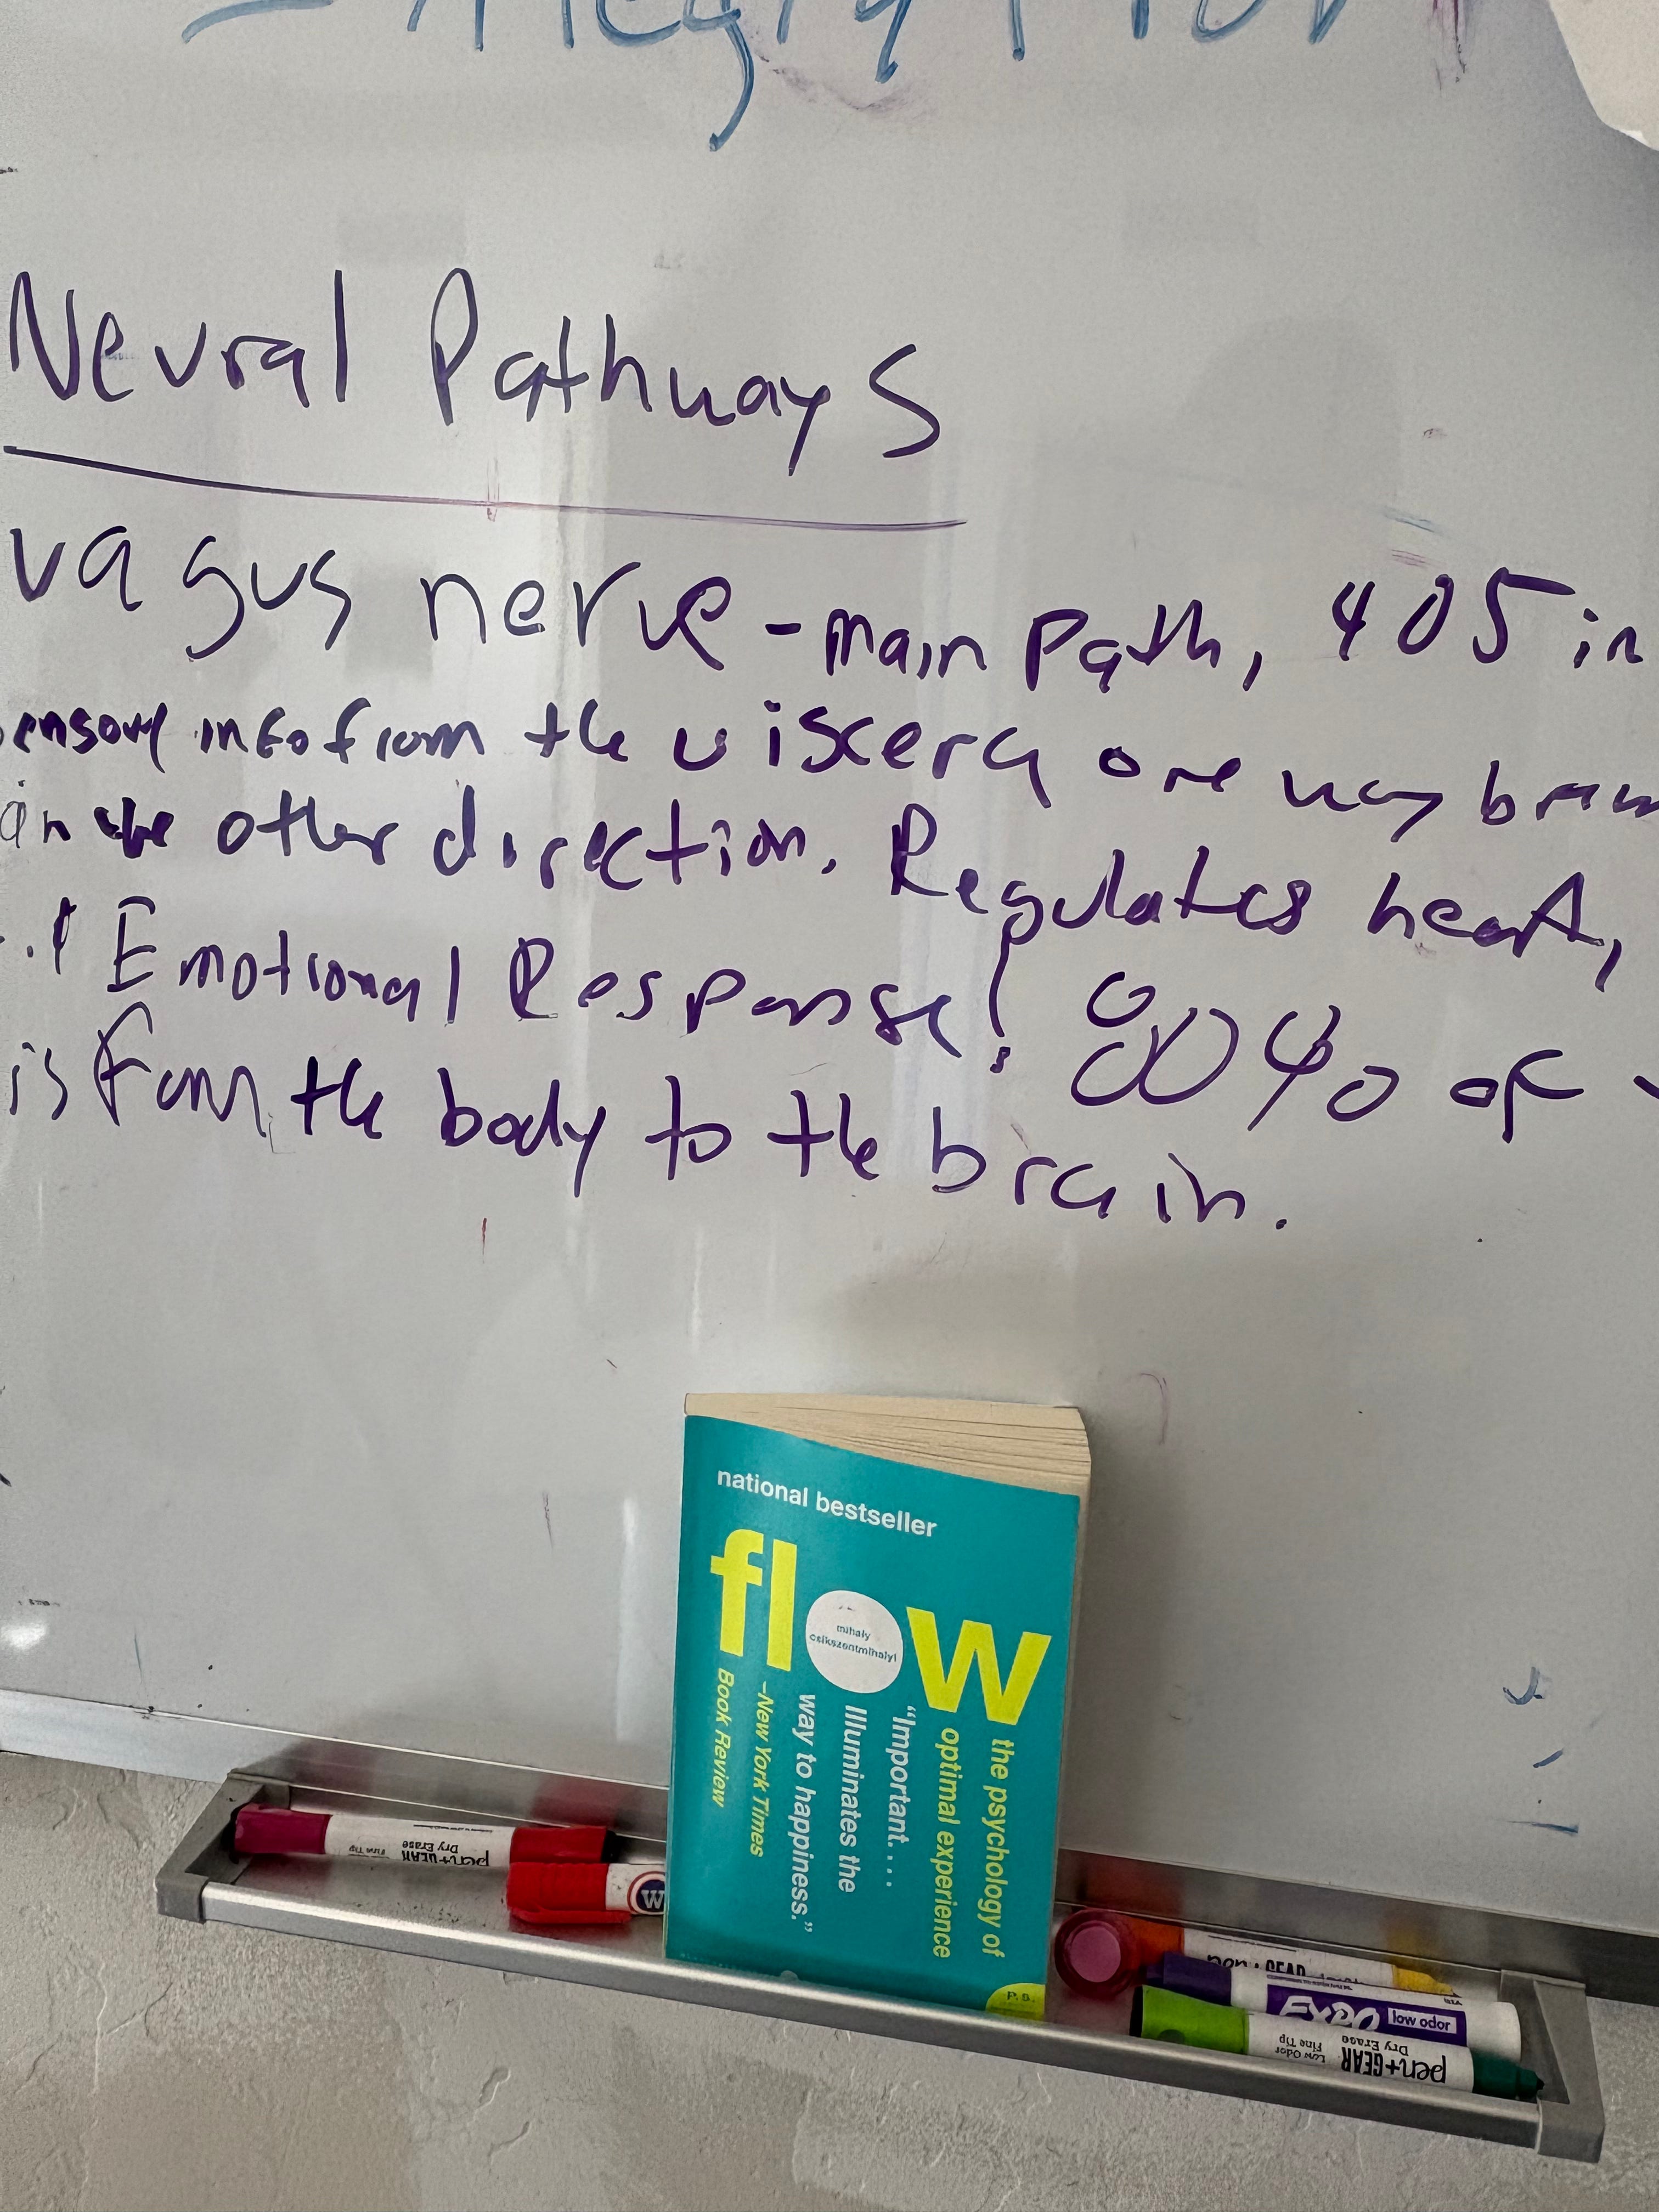 Integration
Neural Pathways
vagus nerve - main path, 405 in
ensory info from the viscera one way brain
in the other direction. Regulates heart,
Emotional Response! 80% of
is from the body to the brain.
national bestseller
flow
mihaly
csikszentmihalyi
the psychology of
optimal experience
"Important. . . .
Illuminates the
way to happiness."
–New York Times
Book Review
P.S.
pen+GEAR
Dry Erase
Fine Tip
W
EXPO
low odor
pen+GEAR
Dry Erase
Low Odor
Fine Tip